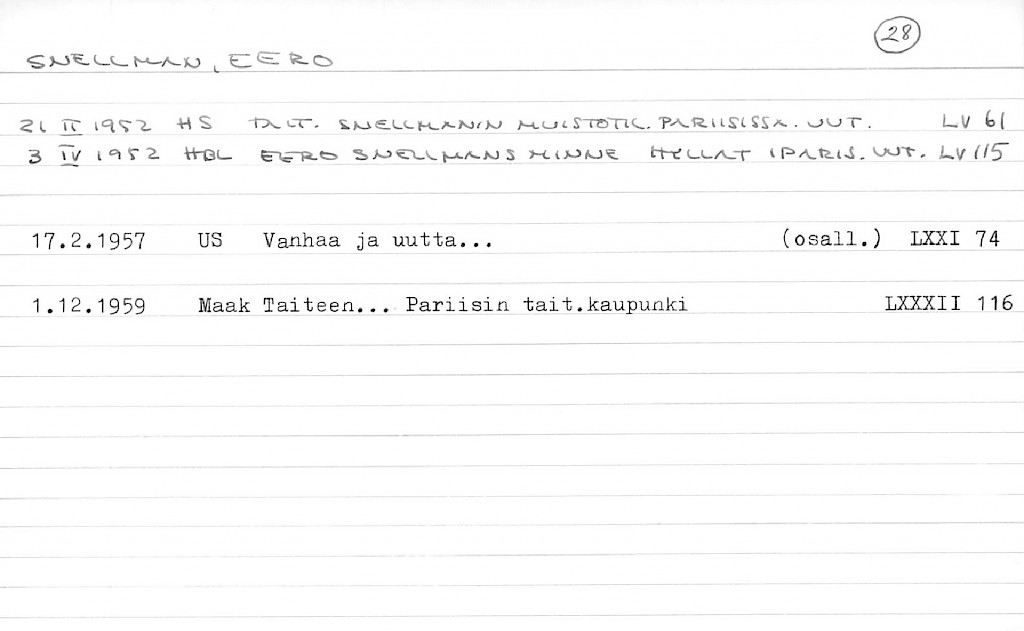 28
SNELLMAN, EERO
21 II 1952 HS TAIT. SNELLMANIN MUISTOTIL. PARIISISSA. UUT. LV 61
3 IV 1952 HBL EERO SNELLMANS MINNE HYLLAT I PARIS. UUT. LV 115
17.2.1957 US Vanhaa ja uutta... (osall.) LXXI 74
1.12.1959 Maak Taiteen... Pariisin tait.kaupunki LXXXII 116